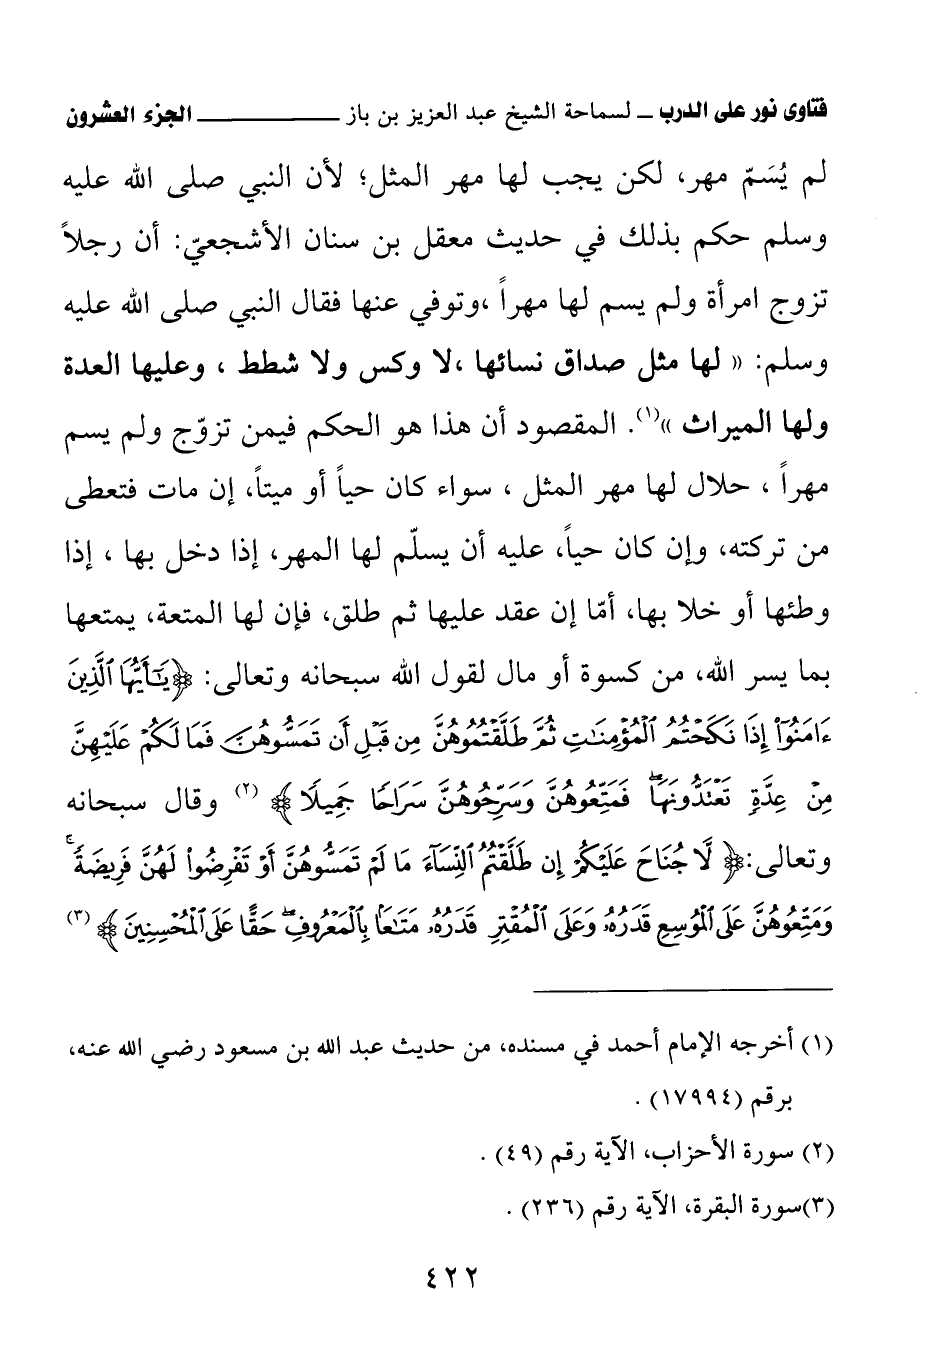 فتاوى نور على الدرب ــ لسماحة الشيخ عبد العزيز بن باز ــــــــــــــــ الجزء العشرون
لم يُسَمّ مهر، لكن يجب لها مهر المثل؛ لأن النبي صلى الله عليه
وسلم حكم بذلك في حديث معقل بن سنان الأشجعيّ: أن رجلاً
تزوج امرأة ولم يسم لها مهراً ،وتوفي عنها فقال النبي صلى الله عليه
وسلم: « لها مثل صداق نسائها ،لا وكس ولا شطط ، وعليها العدة
ولها الميراث »(١). المقصود أن هذا هو الحكم فيمن تزوّج ولم يسم
مهراً ، حلال لها مهر المثل ، سواء كان حياً أو ميتاً، إن مات فتعطى
من تركته، وإن كان حياً، عليه أن يسلّم لها المهر، إذا دخل بها ، إذا
وطئها أو خلا بها، أمّا إن عقد عليها ثم طلق، فإن لها المتعة، يمتعها
بما يسر الله، من كسوة أو مال لقول الله سبحانه وتعالى: ﴿يَٰٓأَيُّهَا ٱلَّذِينَ
ءَامَنُوٓا۟ إِذَا نَكَحْتُمُ ٱلْمُؤْمِنَٰتِ ثُمَّ طَلَّقْتُمُوهُنَّ مِن قَبْلِ أَن تَمَسُّوهُنَّ فَمَا لَكُمْ عَلَيْهِنَّ
مِنْ عِدَّةٍ تَعْتَدُّونَهَا ۖ فَمَتِّعُوهُنَّ وَسَرِّحُوهُنَّ سَرَاحًا جَمِيلًا﴾ (٢) وقال سبحانه
وتعالى:﴿ لَّا جُنَاحَ عَلَيْكُمْ إِن طَلَّقْتُمُ ٱلنِّسَآءَ مَا لَمْ تَمَسُّوهُنَّ أَوْ تَفْرِضُوا۟ لَهُنَّ فَرِيضَةً ۚ
وَمَتِّعُوهُنَّ عَلَى ٱلْمُوسِعِ قَدَرُهُۥ وَعَلَى ٱلْمُقْتِرِ قَدَرُهُۥ مَتَٰعًۢا بِٱلْمَعْرُوفِ ۖ حَقًّا عَلَى ٱلْمُحْسِنِينَ﴾ (٣)
(١) أخرجه الإمام أحمد في مسنده، من حديث عبد الله بن مسعود رضي الله عنه،
برقم (١٧٩٩٤) .
(٢) سورة الأحزاب، الآية رقم (٤٩) .
(٣)سورة البقرة، الآية رقم (٢٣٦) .
٤٢٢